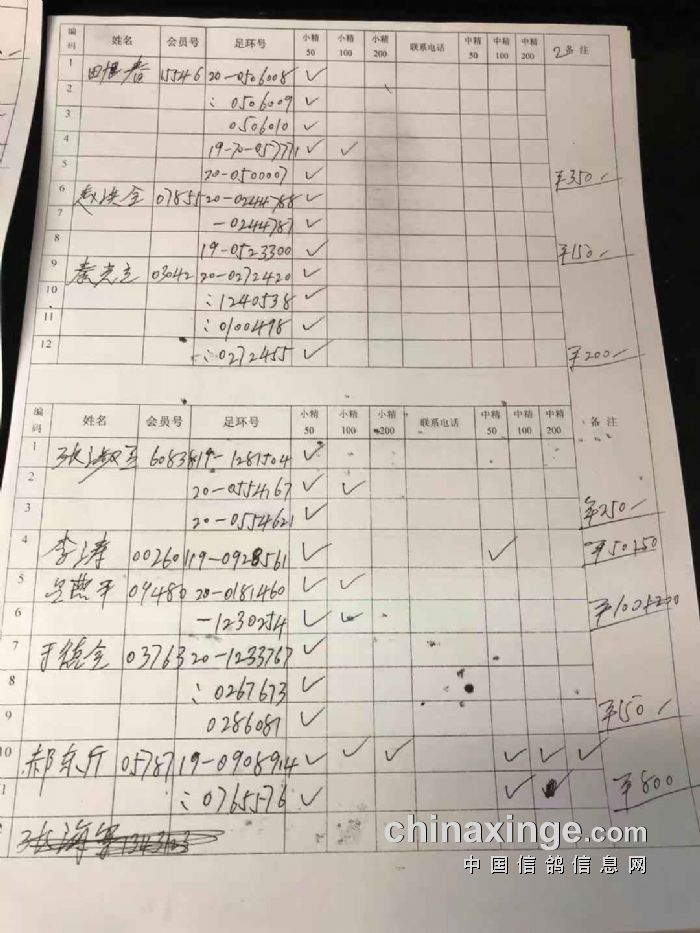 编码 姓名 会员号 足环号 小精50 小精100 小精200 联系电话 中精50 中精100 中精200 2备注
1 田 春 15546 20-0506008 ✓
2 : 0506009 ✓
3 0506010 ✓
4 19-20-057771 ✓ ✓
5 20-0500007 ✓ ¥350
6 赵洪全 07855 20-0244788 ✓
7 -0244787 ✓
8 19-0523300 ✓ ¥150
9 秦 03042 20-0272420 ✓
10 : 1240538 ✓
11 : 0100498 ✓
12 : 0272455 ✓ ¥200
编码 姓名 会员号 足环号 小精50 小精100 小精200 联系电话 中精50 中精100 中精200 备注
1 张淑玉 60838 19-1281504 ✓
2 20-0554167 ✓ ✓
3 20-0554621 ✓ ¥250
4 李涛 002601 19-0928561 ✓ ✓ ¥50+50
5 吴燕平 09480 20-0181460 ✓ ✓
6 -1230254 ✓ ✓ ¥100+200
7 于德全 03763 20-1233767 ✓
8 : 0267673 ✓
9 0286081 ✓ ¥150
10 郝 05787 19-0908914 ✓ ✓ ✓ ✓ ✓ ✓
: 0765576 ✓ ✓ ¥800
张海军
chinaxinge.com
中国信鸽信息网